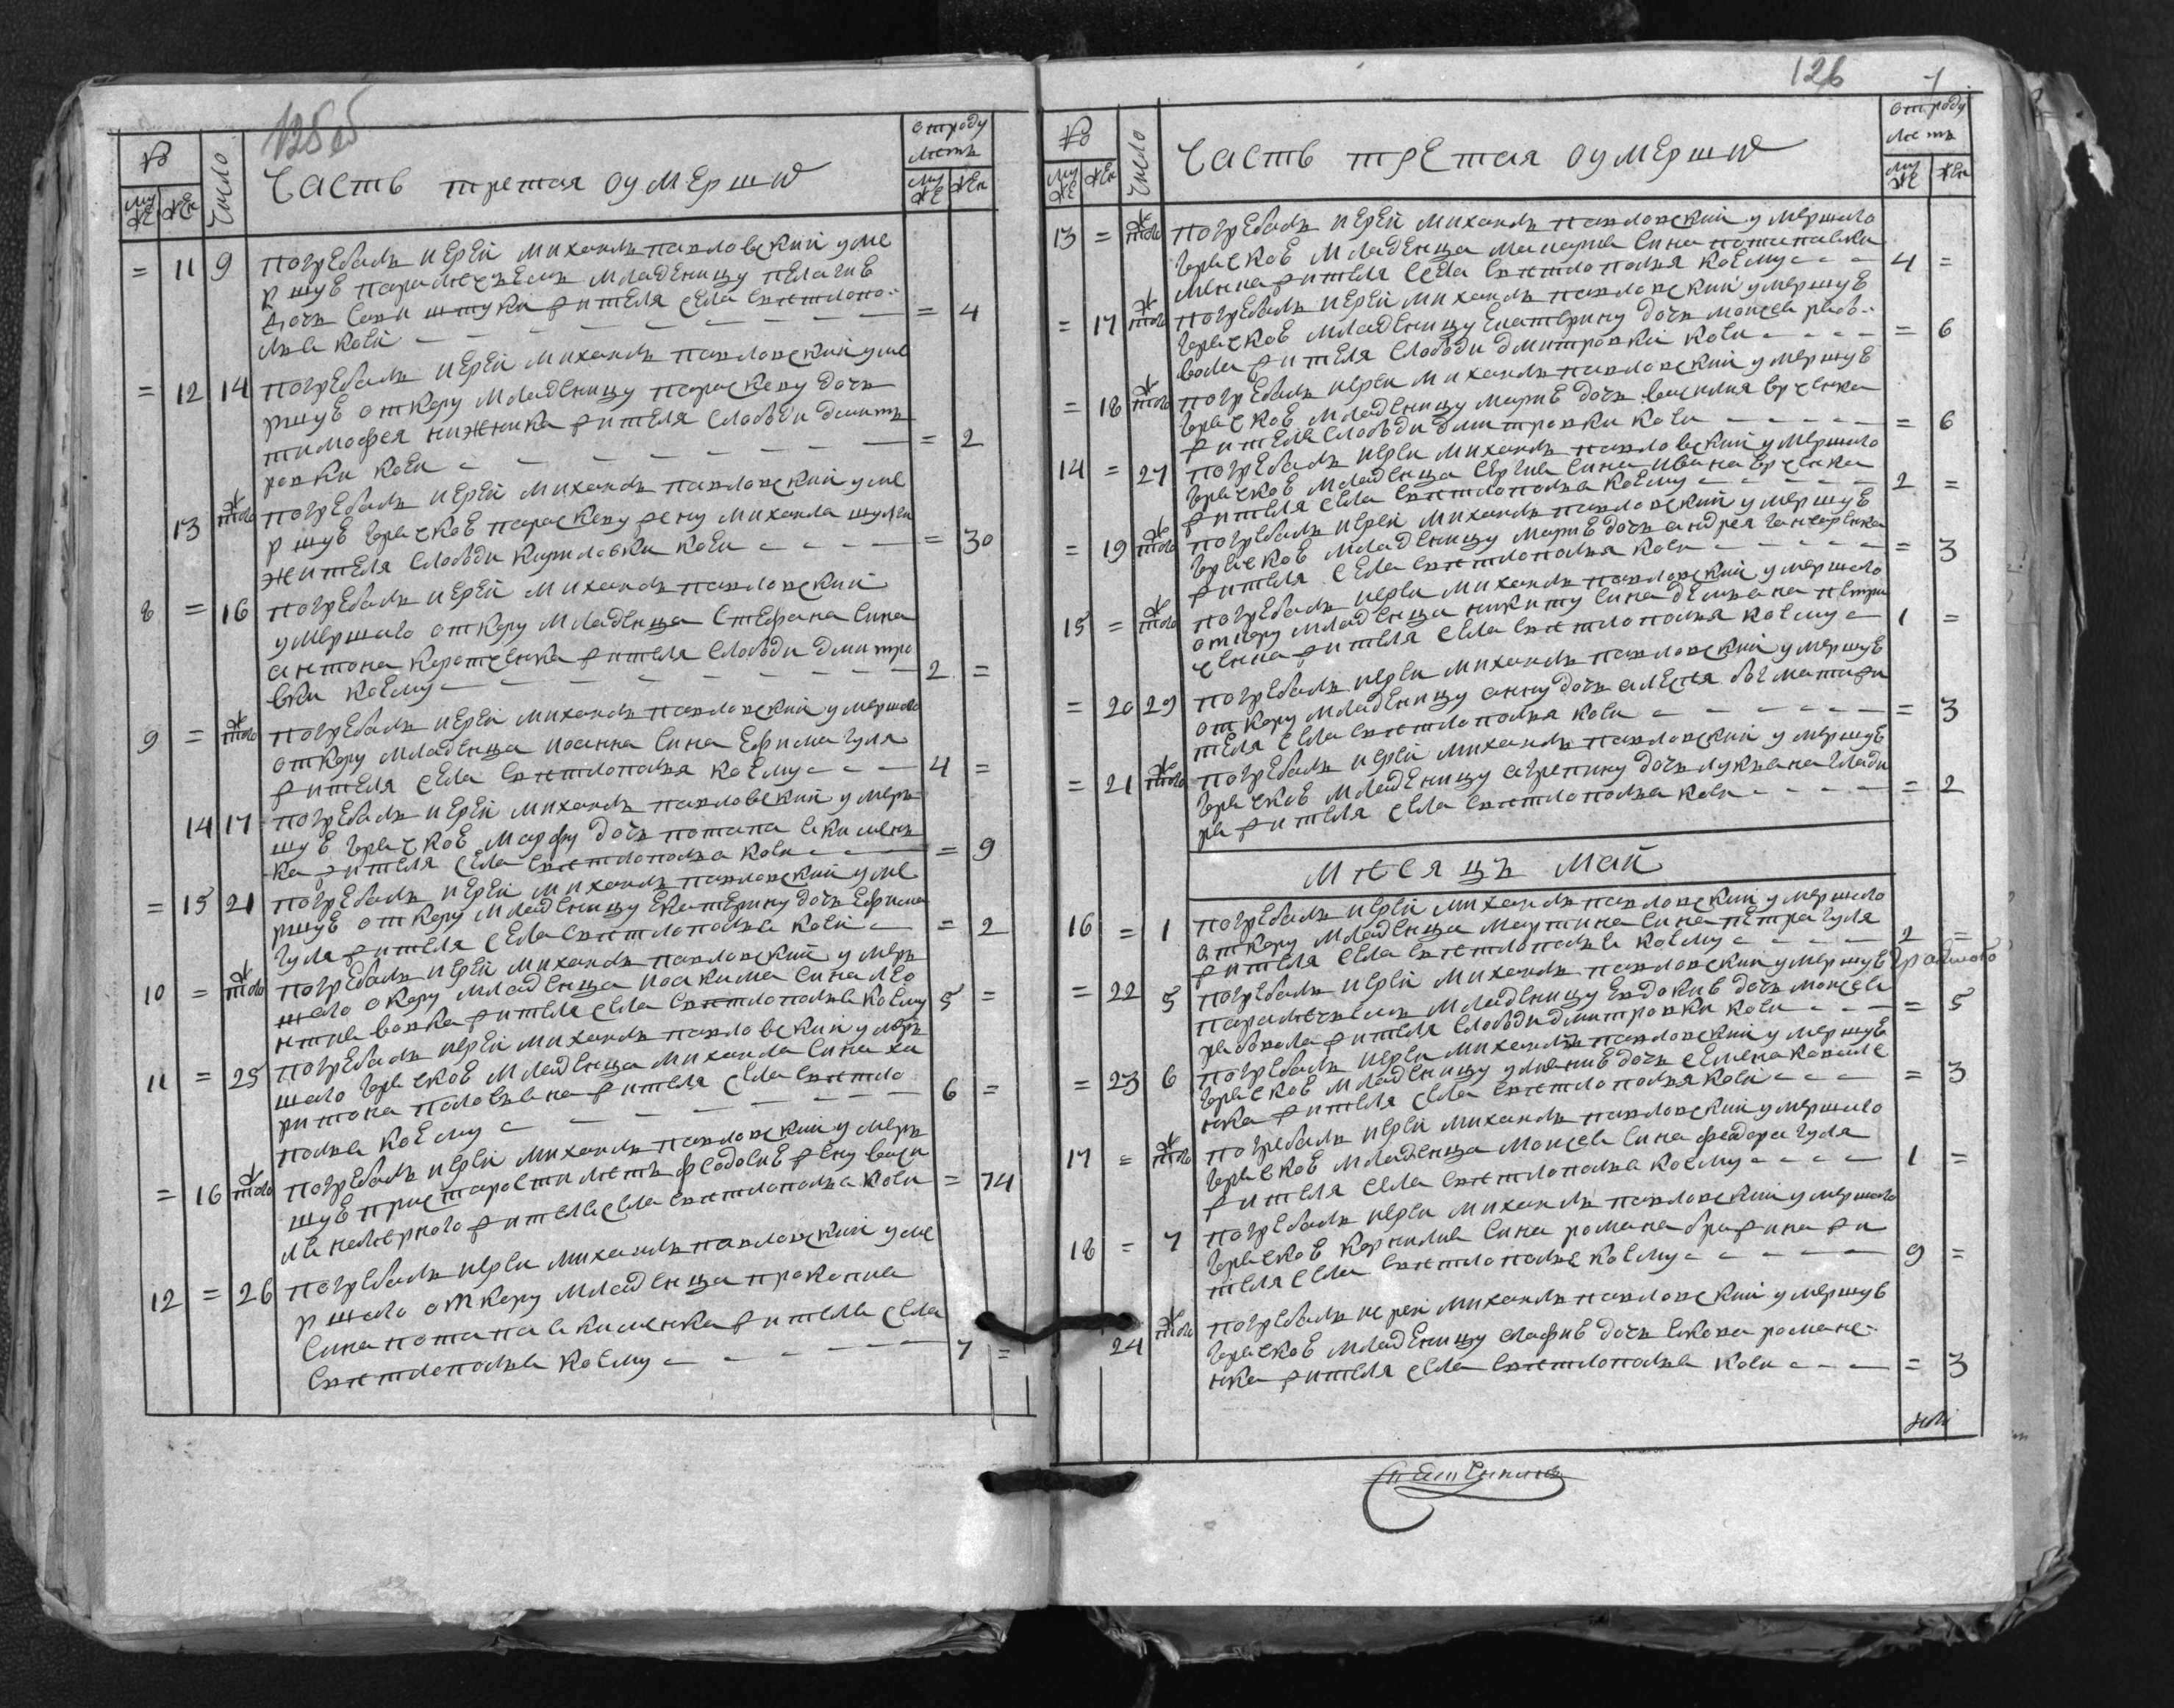 125 об
№
Число
Часть третая оумершиѡ
отроду
летъ
муже
жен
муже
жен
= 11 9 погребалъ иерей михаилъ павловский уме
ршуе паралечъемъ младеницу пелагие
дочъ савы штуки жителя села светлопо-
лья коей = 4
= 12 14 погребалъ иерей михаилъ павловский уме
ршуе откору младеницу параскеву дочъ
тимофея нижника жителя слободи дмитъ
ровки коей = 2
13 того ж погребалъ иерей михаилъ павловский уме
ршуе горячкое параскеву жену михаила
жителя слободи кириловки коей = 30
8 = 16 погребалъ иерей михаилъ павловский
умершаго откору младенца стефана сина
антона коротченка жителя слободи дмитро
вки коему 2 =
9 = того ж погребалъ иерей михаилъ павловский умершаго
откору младенца иоанна сина ефима гуля
жителя села светлополья коему 4 =
14 17 погребалъ иерей михаилъ павловский умер
шуе горячкое марфу дочъ потапа якимен
ка жителя села светлополья коей = 9
= 15 21 погребалъ иерей михаилъ павловский уме
ршуе откору младеницу екатерину дочъ ефима
гуля жителя села светлополья коей = 2
10 = того ж погребалъ иерей михаилъ павловский умер
шаго окору младенца иоакима сина лео
нтия вовка жителя села светлополья коему 5 =
11 = 25 погребалъ иерей михаилъ павловский умер
шаго горячкое младенца михаила сина ха
ритона жителя села светло
полья коему 6 =
= 16 того ж погребалъ иерей михаилъ павловский умер
шуе при старости летъ феодосие жену васи
ля жителя села светлополья коей = 74
12 = 26 погребалъ иерей михаилъ павловский уме
ршаго откору младенца прокопия
сина потапа якименка жителя села
светлополья коему 7 =
126
№
Число
Часть третая оумершиѡ
отроду
летъ
муже
жен
муже
жен
13 = того ж погребалъ иерей михаилъ павловский умершаго
горячкое младенца макария сина
жителя села светлополья коему 4 =
= 17 того ж погребалъ иерей михаилъ павловский умершуе
горячкое младеницу екатерину дочъ моисея рябо-
вола жителя слободи дмитровки коей = 6
= 18 того ж погребалъ иерей михаилъ павловский умершуе
горячкое младеницу марие дочъ василия
жителя слободи дмитровки коей = 6
14 = 27 погребалъ иерей михаилъ павловский умершаго
горячкое младенца сергия сина ивана
жителя села светлополья коему 2 =
= 19 того ж погребалъ иерей михаилъ павловский умершуе
горячкое младеницу марие дочъ андрея гончаренка
жителя села светлополья коей = 3
15 = того ж погребалъ иерей михаилъ павловский умершаго
откору младенца никиту сина демяна петри
ченка жителя села светлополья коему 1 =
= 20 29 погребалъ иерей михаилъ павловский умершуе
откору младеницу анну дочъ жи
теля села светлополья коей = 3
= 21 того ж погребалъ иерей михаилъ павловский умершуе
горячкое младеницу агрепину дочъ лукяна глади
ря жителя села светлополья коей = 2
Месяцъ май
16 = 1 погребалъ иерей михаилъ павловский умершаго
откору младенца мартина сина петра гуля
жителя села светлополья коему 2 =
= 22 5 погребалъ иерей михаилъ павловский умершуе
паралечъемъ младеницу евдокие дочъ моисея
рябовола жителя слободи дмитровки коей = 5
= 23 6 погребалъ иерей михаилъ павловский умершуе
горячкое младеницу улияние дочъ семена
нка жителя села светлополья коей = 3
17 = того ж погребалъ иерей михаилъ павловский умершаго
горячкое младенца моисея сина феодора гуля
жителя села светлополья коему 1 =
18 = 7 погребалъ иерей михаилъ павловский умершаго
горячкое корнилия сина романа жи
теля села светлополья коему 9 =
24 того ж погребалъ иерей михаилъ павловский умершуе
горячкое младеницу агафие дочъ якова романе-
нка жителя села светлополья коей = 3